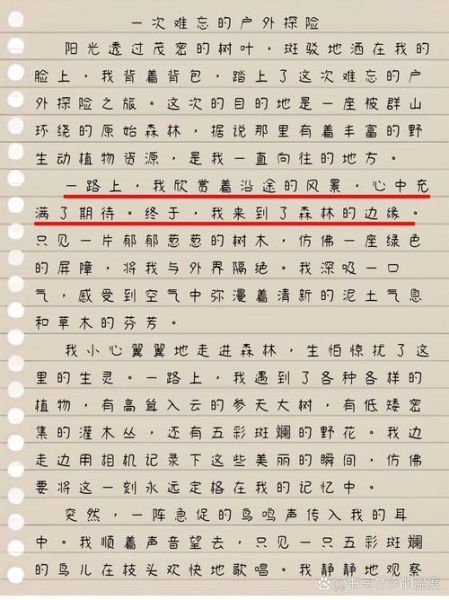 一次难忘的户外探险
阳光透过茂密的树叶，斑驳地洒在我的
脸上，我背着背包，踏上了这次难忘的户
外探险之旅。这次的目的地是一座被群山
环绕的原始森林，据说那里有着丰富的野
生动植物资源，是我一直向往的地方。
一路上，我欣赏着沿途的风景，心中充
满了期待。终于，我来到了森林的边缘。
只见一片郁郁葱葱的树木，仿佛一座绿色
的屏障，将我与外界隔绝。我深吸一口
气，感受到空气中弥漫着清新的泥土气息
和草木的芬芳。
我小心翼翼地走进森林，生怕惊扰了这
里的生灵。一路上，我遇到了各种各样的
植物，有高耸入云的参天大树，有低矮密
集的灌木丛，还有五彩斑斓的野花。我边
走边用相机记录下这些美丽的瞬间，仿佛
要将这一刻永远定格在我的记忆中。
突然，一阵急促的鸟鸣声传入我的耳
中。我顺着声音望去，只见一只五彩斑斓
的鸟儿在枝头欢快地歌唱。我静静地观察